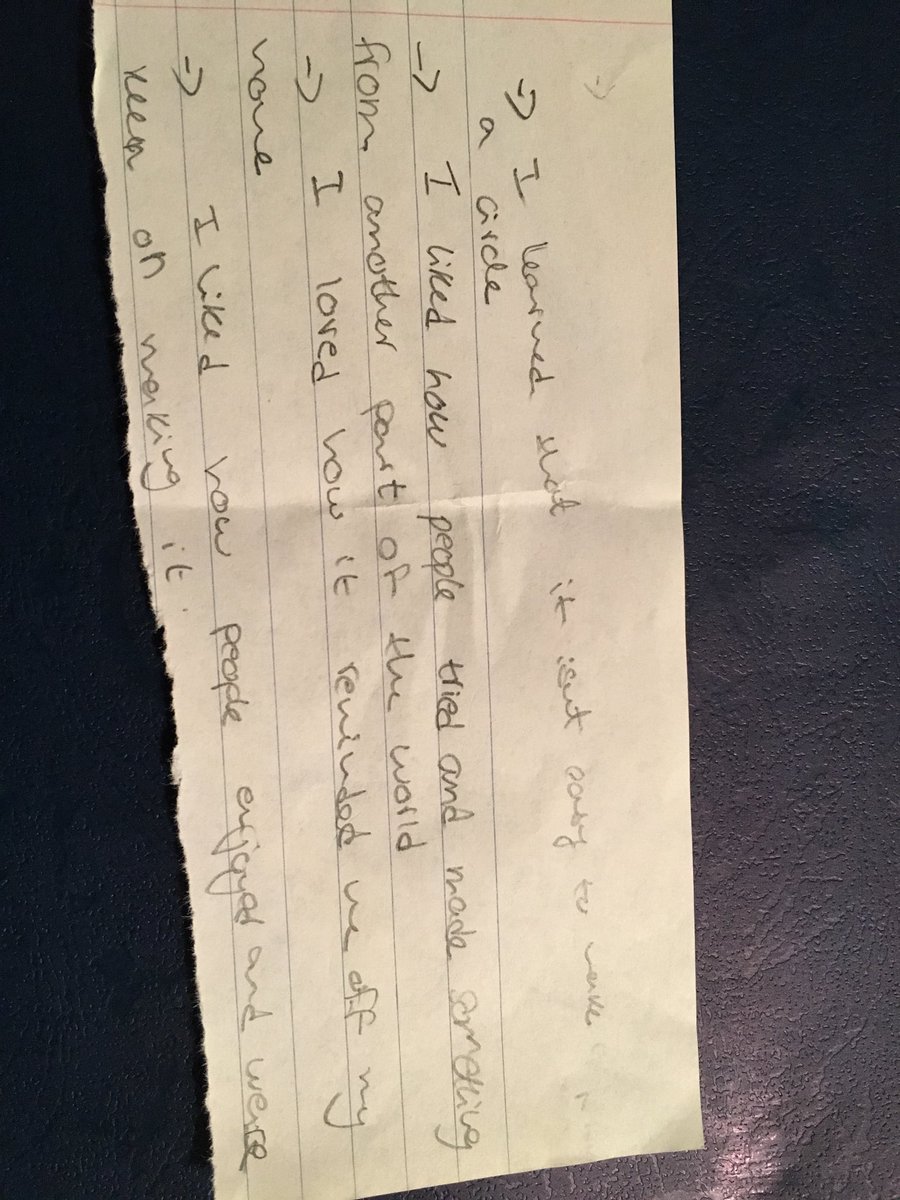 →
→ I learned that it isnt easy to make
a circle
→ I liked how people tried and made something
from another part of the world
→ I loved how it reminded me off my
home
→ I liked how people enjoyed and were
keen on making it.